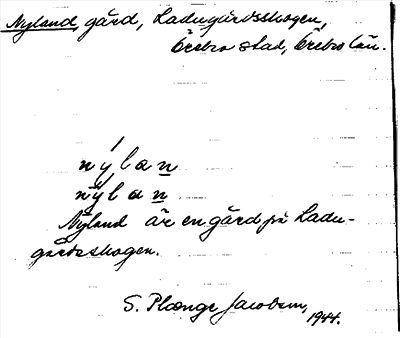 Nyland, gård, Ladugårdsskogen,
Örebro stad, Örebro län.
nýlan
nỳlan
Nyland är en gård på Ladu-
gårdsskogen.
S. Plænge Jacobson,
1944.